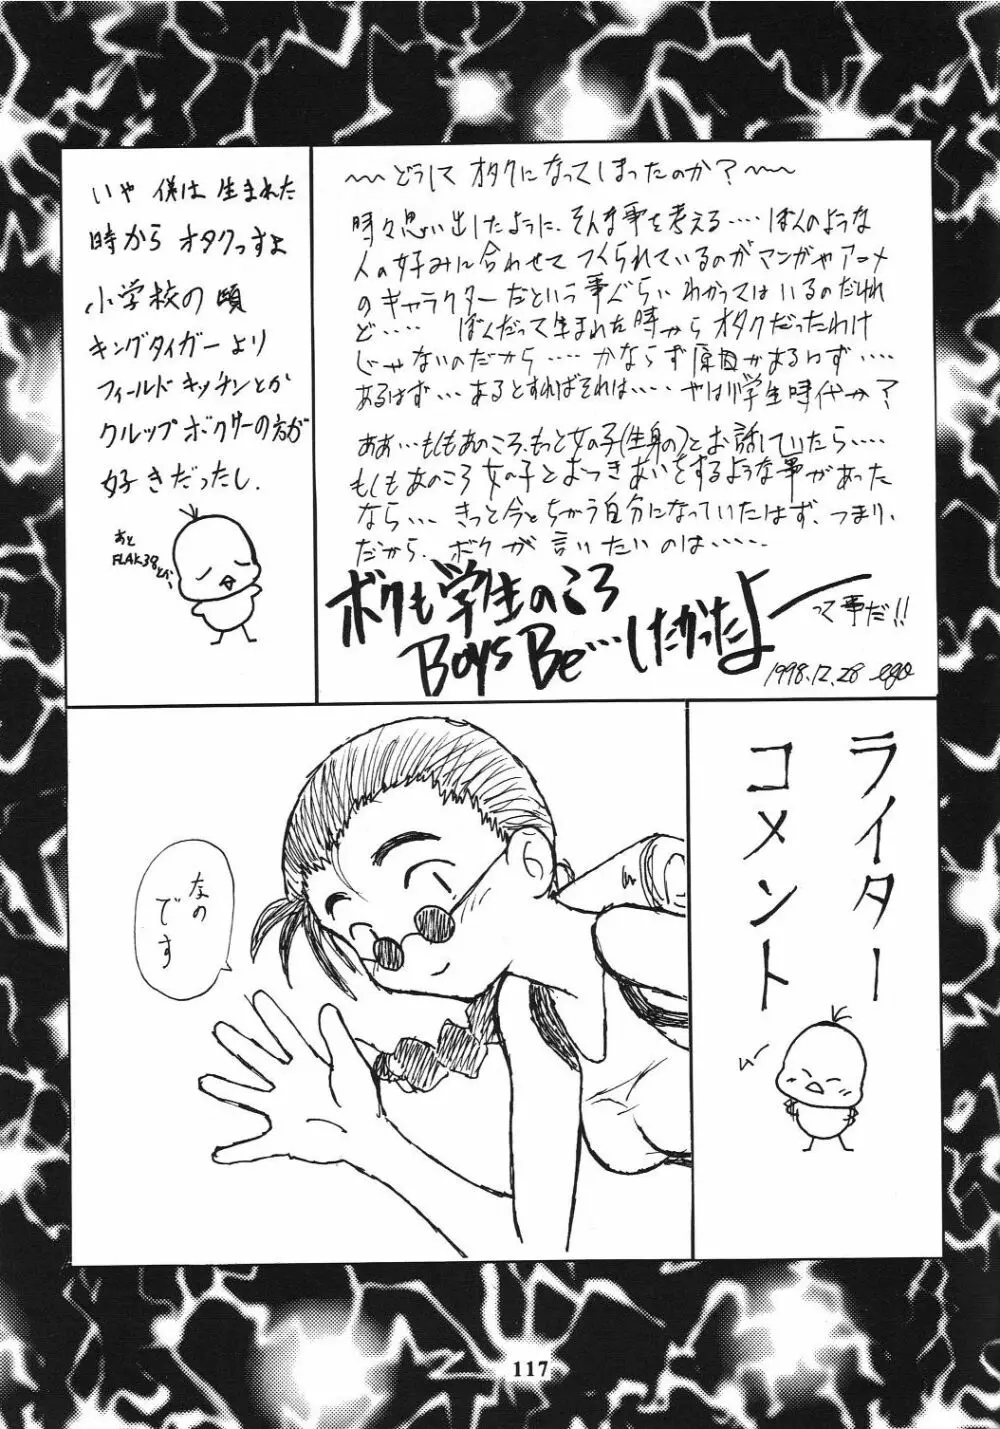 〜どうして オタクになってしまったのか？〜
時々思い出したように、そんな事を考える‥‥ ぼくのような
人の好みに合わせて つくられているのがマンガやアニメ
のキャラクターだという事ぐらい わかってはいるのだけれ
ど‥‥‥ ぼくだって生まれた時から オタクだったわけ
じゃないのだから‥‥ かならず原因があるはず‥‥
あるはず‥‥あるとすればそれは‥‥ やはり学生時代か？
ああ‥もしもあのころ、もっと女の子(生身の)とお話していたら‥‥
もしもあのころ 女の子とおつきあいをするような事があった
なら‥‥ きっと今とちがう自分になっていたはず、つまり、
だから、ボクが言いたいのは‥‥‥
ボクも学生のころ
Boys Be‥‥したかったよー
って事だ!!
1998.12.28 ego
いや 僕は 生まれた
時から オタクっすよ
小学校の頃
キングタイガーより
フィールドキッチンとか
クルップボクサーの方が
好きだったし.
あと
FLAK38とか、
ライター
コメント
なの
です
117